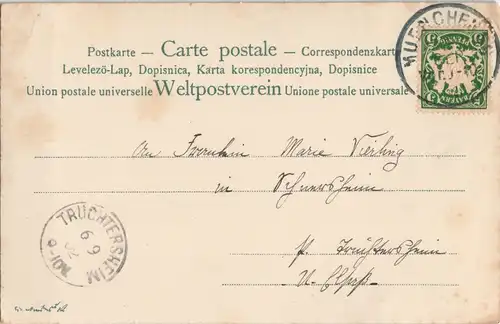 Postkarte — Carte postale — Correspondenzkarte
Levelező-Lap, Dopisnica, Karta korespondencyjna, Dopisnice
Union postale universelle Weltpostverein Unione postale universale
MUENCHEN
BAYERN
5 5
An Fräulein Marie Vierling
in Schnersheim
p. Truchtersheim
U. Elsaß
TRUCHTERSHEIM
6 9